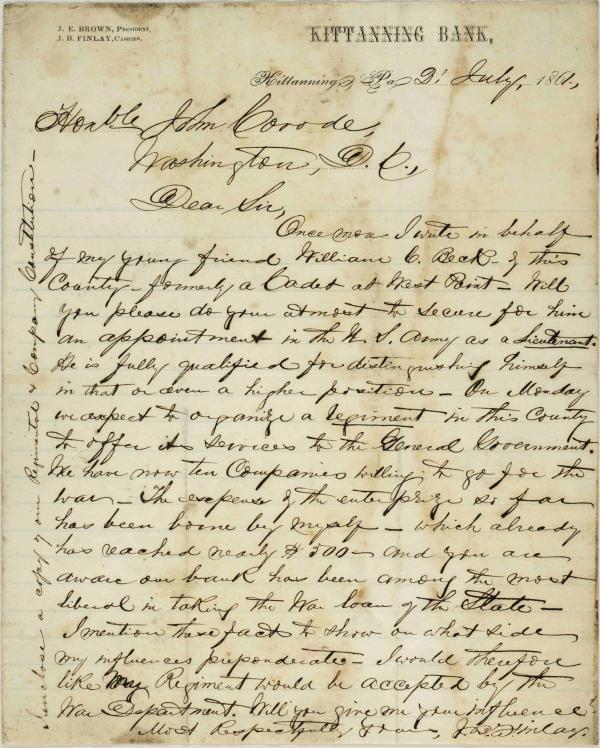 J. E. BROWN, PRESIDENT,
J. B. FINLAY, CASHIER.
KITTANNING BANK,
Kittanning, Pa 2' July, 1861,
Honble John Covode,
Washington, D. C.,
Dear Sir,
Once more I write in behalf
of my young friend William C. Beck - of this
County - formerly a Cadet at West Point - Will
you please do your utmost to secure for him
an appointment in the U. S. Army as a Lieutenant.
He is fully qualified for distinguishing himself
in that or even a higher position - On Monday
we expect to organize a regiment in this County
to offer its services to the General Government.
We have now ten Companies willing to go for the
war - The expense of the enterprize so far
has been borne by myself - which already
has reached nearly $500 - and you are
aware our bank has been among the most
liberal in taking the War loan of the State -
I mention these facts to show on what side
my influences preponderate - I would therefore
like my Regiment would be accepted by the
War Department. Will you give me your influence?
Most Respectfully yours, J. B. Finlay.
I enclose a copy of our Regimental & Company Constitution -